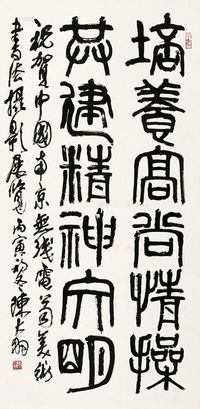 培養高尚情操
共建精神文明
祝賀中國南京無线電公司美術
書法攝影展览 丙寅初冬 陳大羽